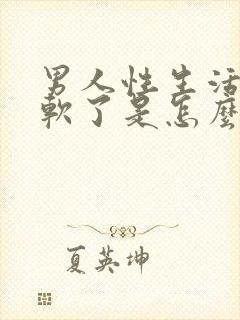 男人性生活
軟了是怎麼
夏英坤